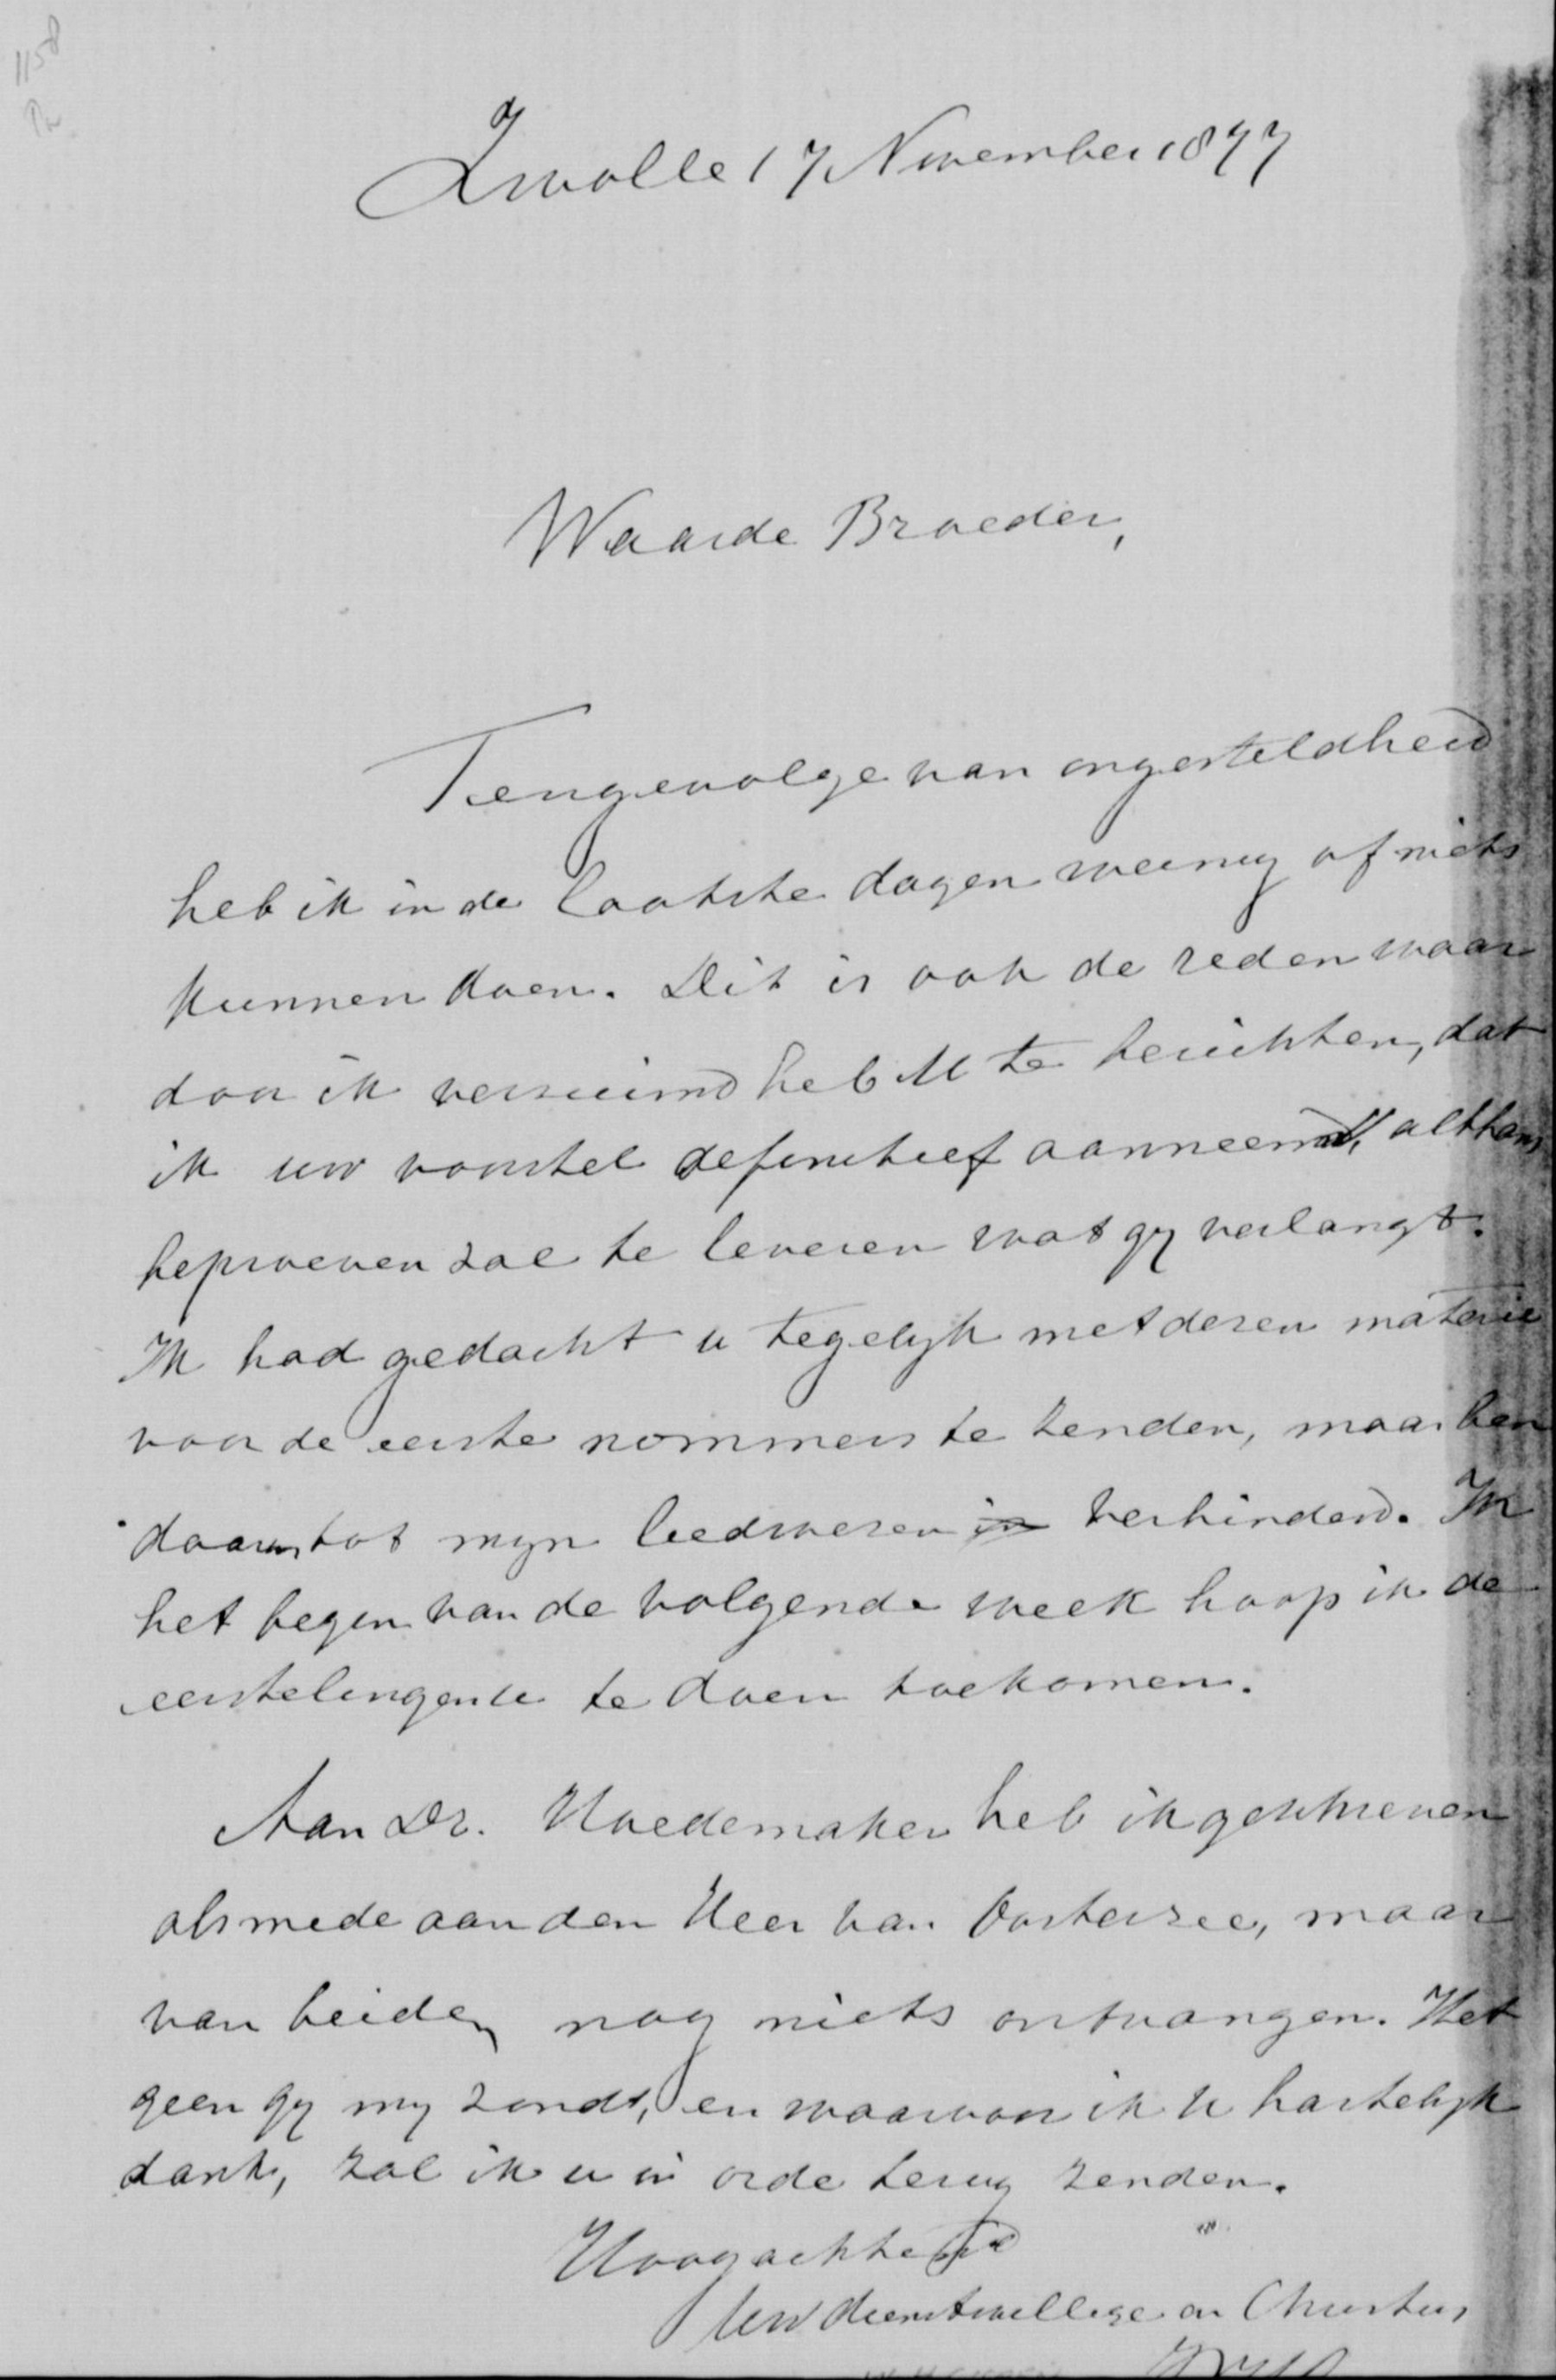 1158
Zwolle 17 November 1877
Waarde Broeder,
Tengevolge van ongesteldheid
heb ik in de laatste dagen weinig of niets
kunnen doen. Dit is ook de reden waar
door ik verzuimd heb U te berichten, dat
ik uw voorstel definitief aanneem, althans
beproeven zal te leveren wat gij verlangt.
Ik had gedacht u tegelijk met dezen materie
voor de eerste nommers te zenden, maar ben
daarin tot mijn leedwezen verhinderd. In
het begin van de volgende week hoop ik de
eerstelingen te doen toekomen.
Aan Dr. Hoedemaker heb ik geschreven
alsmede aan den Heer van Oosterzee, maar
van beiden nog niets ontvangen. Het
geen gij mij zondt, en waarvoor ik U hartelijk
dank, zal ik u in orde terug zenden.
Hoogachtend
Uw dienstwillige in Christus,